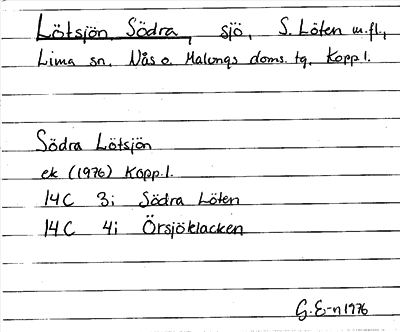 Lötsjön, Södra, sjö, S. Löten m.fl.,
Lima sn, Nås o. Malungs doms. tg, Kopp l.
Södra Lötsjön
ek (1976) Kopp. l.
14C 3i Södra Löten
14C 4i Örsjöklacken
G. E-n 1976